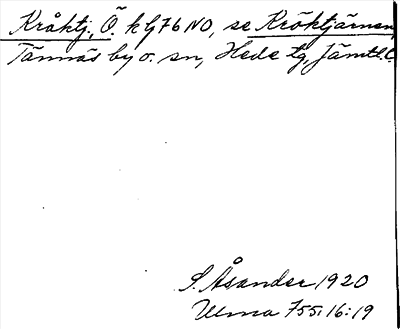 Kråktj., Ö. k G76 NO, se Kröktjärnen,
Tännäs by o. sn, Hede tg, Jämtl.
S. Åsander 1920
Ulma 755:16:19